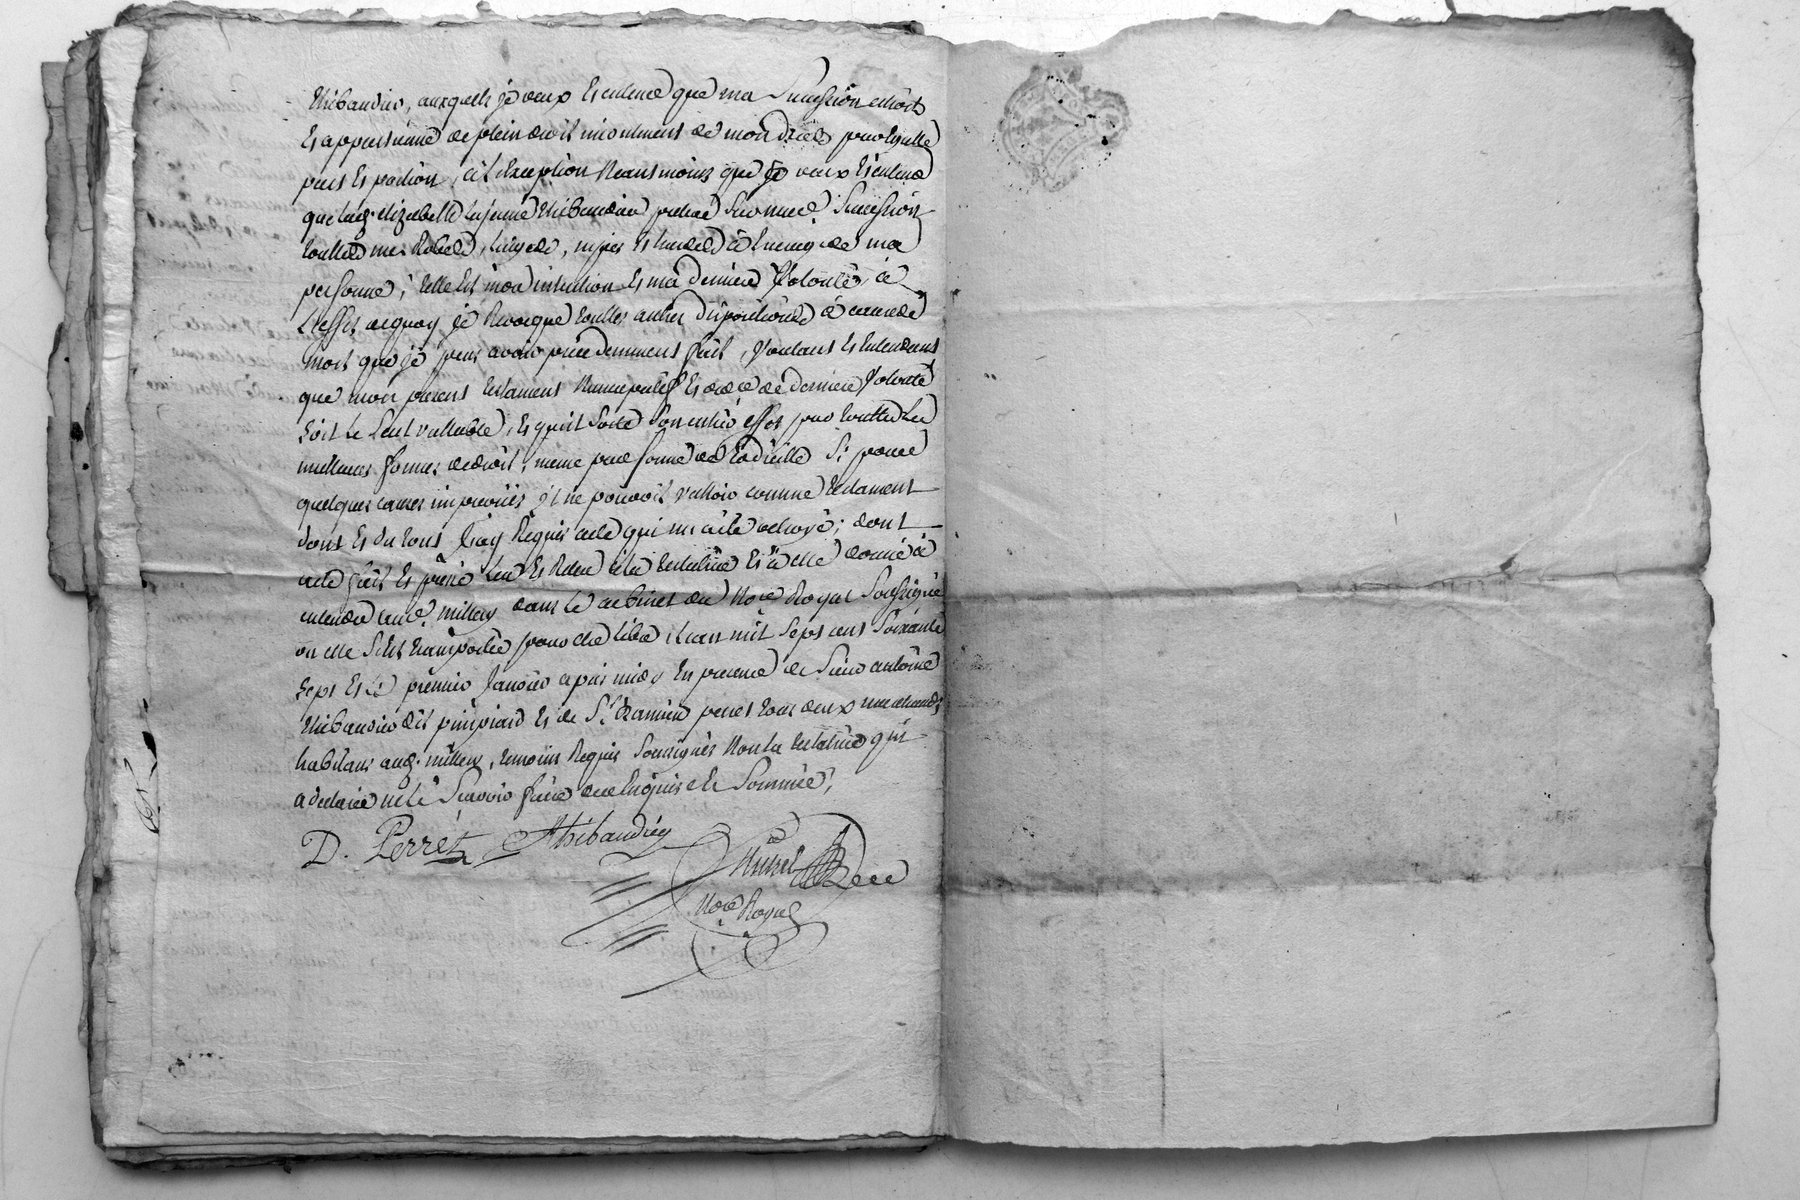 thibaudier, auxquels je veux et entend que ma Succession echoit
et appartienne de plein droit incontinent de mon deces par egalle
part et portion, a l'exception neansmoins que je veux et entend
que lad. elizabelle la jeune thibaudier preleve Sur maditte Succession
touttes mes Robes, linges, nipes et hardes à l'usage de ma
personne; telle est mon intention et ma derniere Volonté, a
L'effet dequoy je Revoque touttes autres dispositions à cause de
mort que je peux avoir précedemment fait, Voulant et Entendant
que mon present testament Nuncupatif et ordce de derniere Volonté
soit le Seul vallable, et qu'il Sorte Son entier effet par touttes les
meilleures formes de droit, meme par forme de Codicille Si pour
quelques causes impreveües il ne pouvoit valloir comme testament
dont et du tout j'ay Requis acte qui m'a été octroyé; dont
acte fait et passé leu et Releu à la testatrice et à elle donné à
entendre aud. millery dans le cabinet du Nore Royal Soussigné
ou elle S'est transportée pour cela l'an mil Sept cent Soixante
sept et le premier Janvier apres midy En presence de Sieur antoine
thibaudier dit pimpiard et de Sr Damien perret tous deux marchands
habitans aud. millery, temoins Requis Soussignés Non la testatrice qui
a declaré ne le Scavoir faire de ce Enquise et Sommée,
D. Perret AThibaudier
Nore Royal